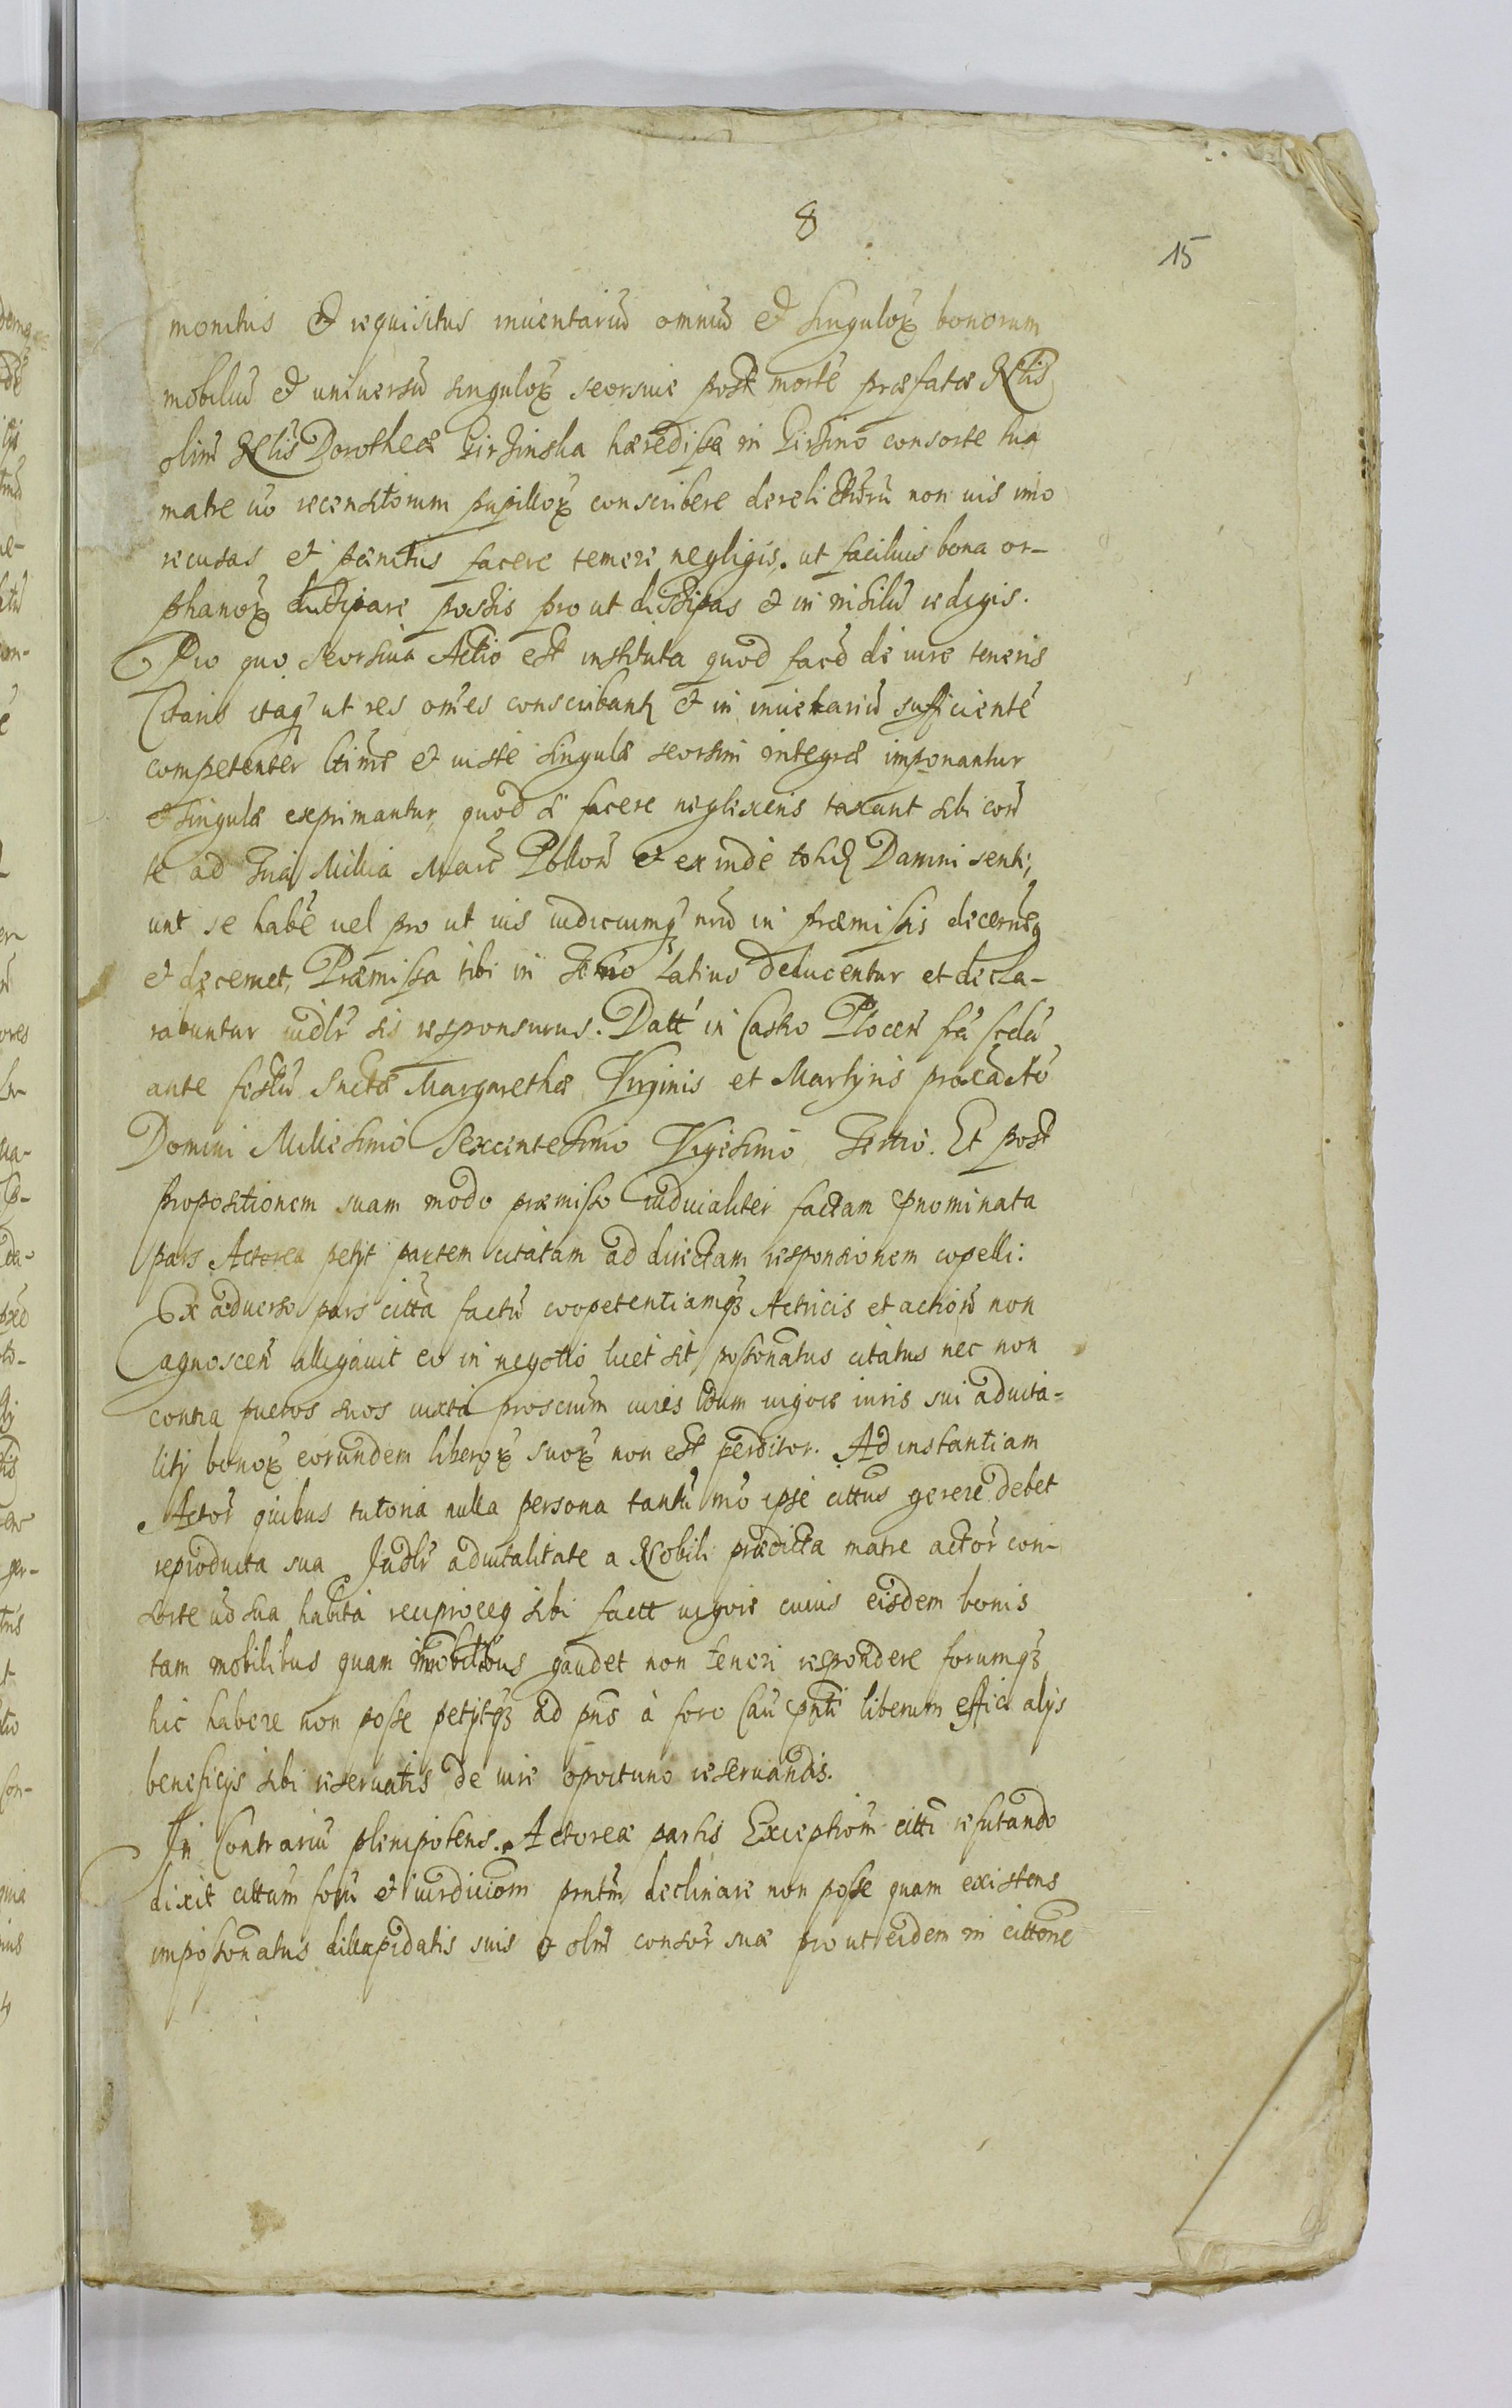 8
15
monitus et requisitus inuentariũ omniũ et singuloꝝ bonorum
mobiliũ et uniuersũ singuloꝝ seorsiue post mortẽ præfatæ Nlis
olim Nlis Dorotheæ hæredissa in consorte tua
matre uo recensitorum pupilloꝝ conscribere derelictorũ non uis imo
recusas et penitus facere temere negligis. ut facilius bona or-
phanoꝝ dissipare possis pro ut dissipas et in nihilũ redigis.
Pro quo seorsiua Actio est instituta quod facẽ de iure teneris
Citaris itaq ut res om̃es conscribant et in inuentariũ sufficientẽ
competenter ltime et iuste singulæ seorsim integræ imponantur
et singulæ exprimantur quod si facere neglexeris taxant sibi con
te ad Tria Millia Marc Pollon et exinde totid Damni senti,
unt se habẽ uel pro ut ius iudiciumq nrũ in præmissis decerneq
et decernet, Præmissa tibi in termino latius deducentur et decla-
rabuntur iudlr sis responsurus. Datt in Castro Plocen fa 
ante festũ Snctæ Margarethæ Virginis et Martyris proxa Ao
Domini Millesimo Sexcentesimo Vigesimo Tertio. Et post
propositionem suam modo præmisso iudicialiter factam pnominata
pars Actorea petyt partem citatam ad directam responsionem copelli:
Ex aduerso pars citta factũ coopetentiamqꝫ Actricis et actiorũ non
agnoscen allegauit eo in negotio licet sit possonatus citatus nec non
contra pueros suos iuxta proscium iuris ldum uigore iuris sui aduita-
lity bonoꝝ eorundem liberoꝝ suoꝝ non est perditor. Ad instantiam
Actor quibus tutoria nulla persona tantũ mo ipse cittus gerere debet
reproducta sua Judlr aduitalitate a Nobili prædicta matre actor con-
sorte uo sua habita reciproceq sibi factt uigore cuius eisdem bonis
tam mobilibus quam imobilibus gaudet non teneri respondere forumqꝫ
hic habere non posse petytqꝫ ad pñs à foro Cau pñti liberum effici alys
beneficys sibi reseruatis de iure oportuno reseruandis.
In Contrariũ plenipotens. Actoreæ partis Exceptiom̃ citti refutando
dixit cittum forũ et iurdiciom̃ pñtem declinare non posse quam existens
impossonatus dillapidatis suis et olim consor suæ pro ut eidem in cittone